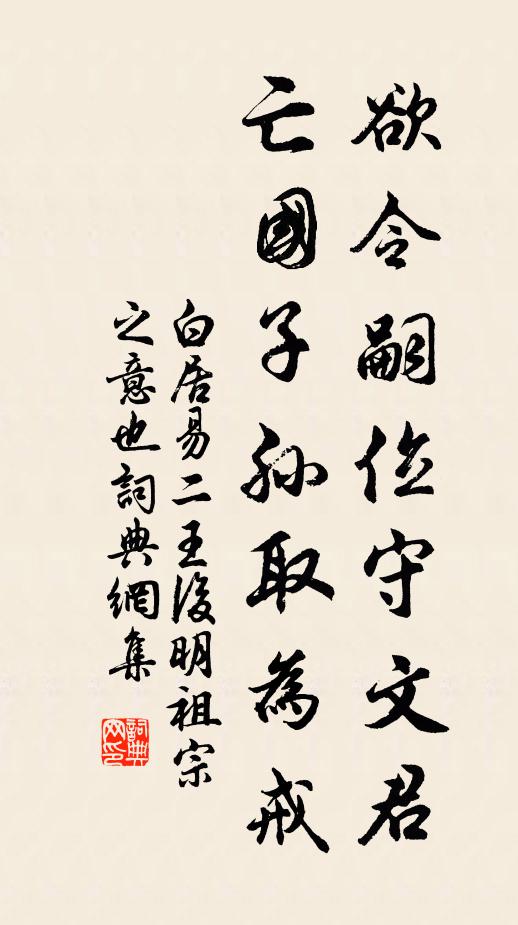 欲令嗣位守文君
亡國子孫取為戒
白居易二王後明祖宗
之意也詞典網集
詞典
網印